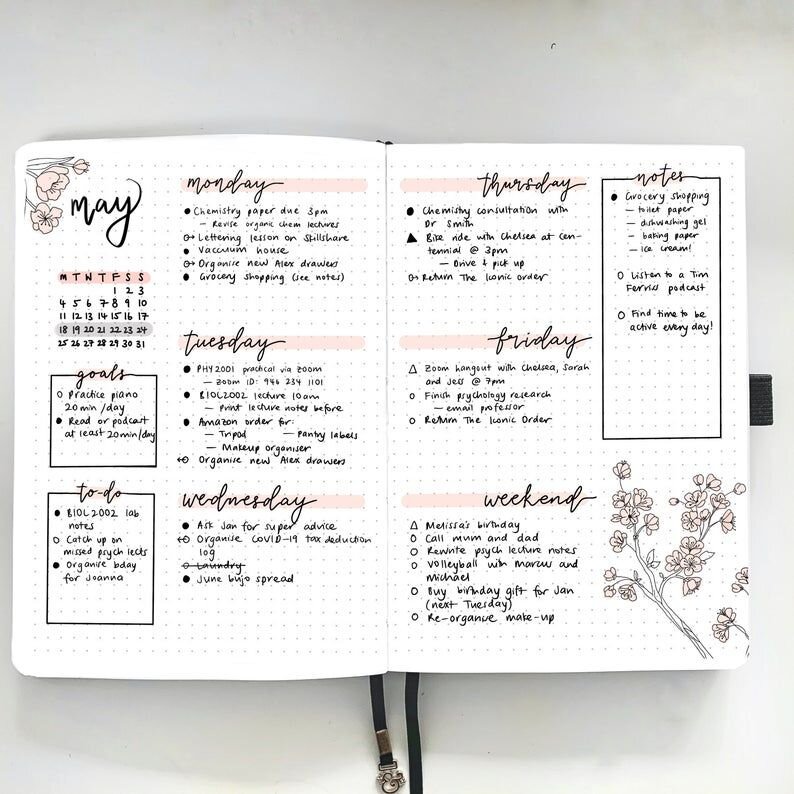 may
M T W T F S S
1 2 3
4 5 6 7 8 9 10
11 12 13 14 15 16 17
18 19 20 21 22 23 24
25 26 27 28 29 30 31
goals
Practice piano
20min /day
Read or podcast
at least 20min/day
to-do
BIOL2002 lab
notes
Catch up on
missed psych lects
Organise bday
for Joanna
monday
Chemistry paper due 3pm
— Revise organic chem lectures
Lettering lesson on Skillshare
Vacuum house
Organise new Alex drawers
Grocery shopping (see notes)
tuesday
PHY2001 practical via Zoom
— Zoom ID: 946 234 1101
BIOL2002 lecture 10am
— Print lecture notes before
Amazon order for:
— Tripod — Pantry labels
— Makeup organiser
Organise new Alex drawers
wednesday
Ask Jan for super advice
Organise COVID-19 tax deduction
log
Laundry
June bujo spread
thursday
Chemistry consultation with
Dr Smith
Bike ride with Chelsea at Cen-
tennial @ 3pm
— Drive + pick up
Return The Iconic order
friday
Zoom hangout with Chelsea, Sarah
and Jess @ 7pm
Finish psychology research
— email professor
Return The Iconic Order
weekend
Melissa's birthday
Call mum and dad
Rewrite psych lecture notes
Volleyball with marcus and
michael
Buy birthday gift for Jan
(next Tuesday)
Re-organise make-up
notes
Grocery shopping
— toilet paper
— dishwashing gel
— baking paper
— ice cream!
Listen to a Tim
Ferriss podcast
Find time to be
active every day!